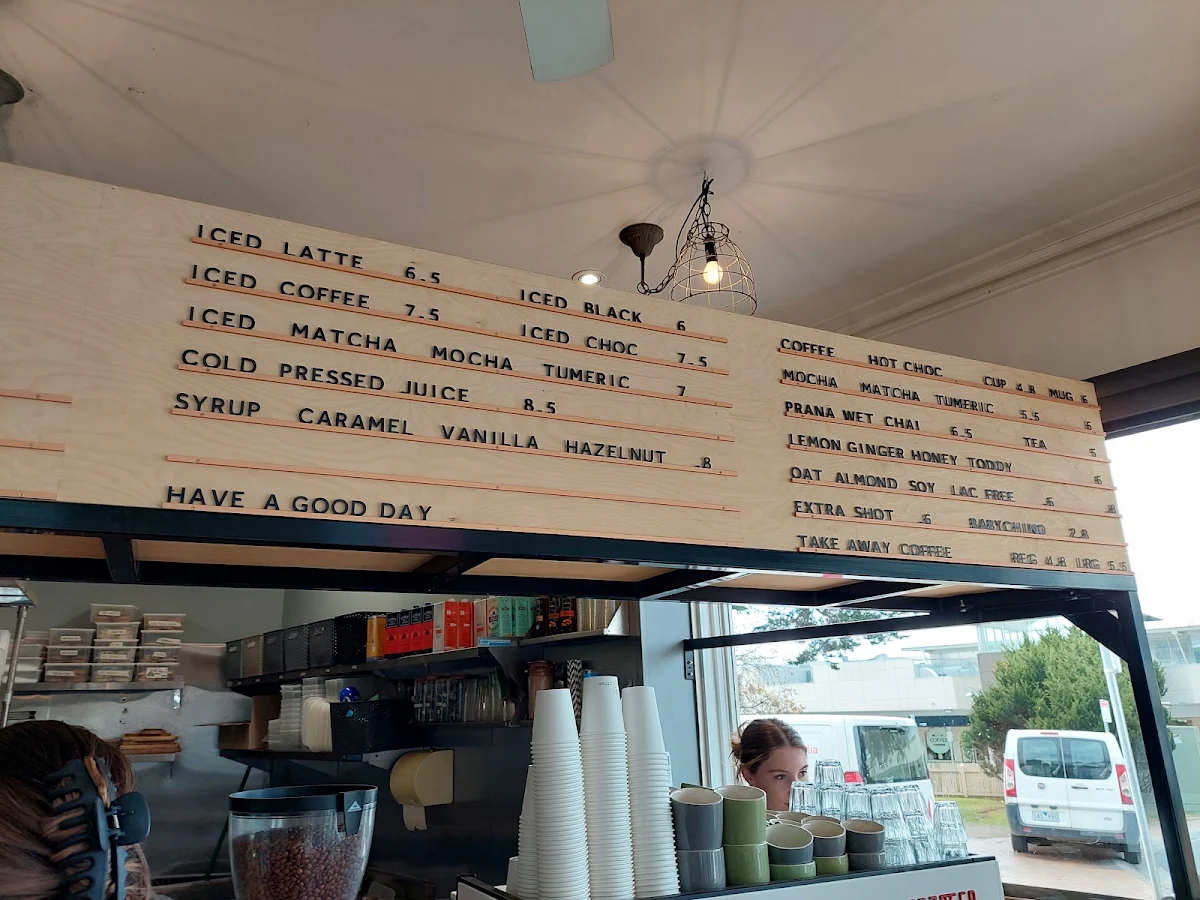 ICED LATTE 6.5
ICED BLACK 6
ICED COFFEE 7.5
ICED CHOC 7.5
ICED MATCHA MOCHA TUMERIC 7
COLD PRESSED JUICE 8.5
SYRUP CARAMEL VANILLA HAZELNUT .8
HAVE A GOOD DAY
COFFEE HOT CHOC CUP 4.8 MUG 6
MOCHA MATCHA TUMERIC 5.5 6
PRANA WET CHAI 6.5 TEA 5
LEMON GINGER HONEY TODDY 6
OAT ALMOND SOY LAC FREE .6 .8
EXTRA SHOT .6 BABYCHINO 2.8
TAKE AWAY COFFEE REG 4.8 LRG 5.5
COFFEE